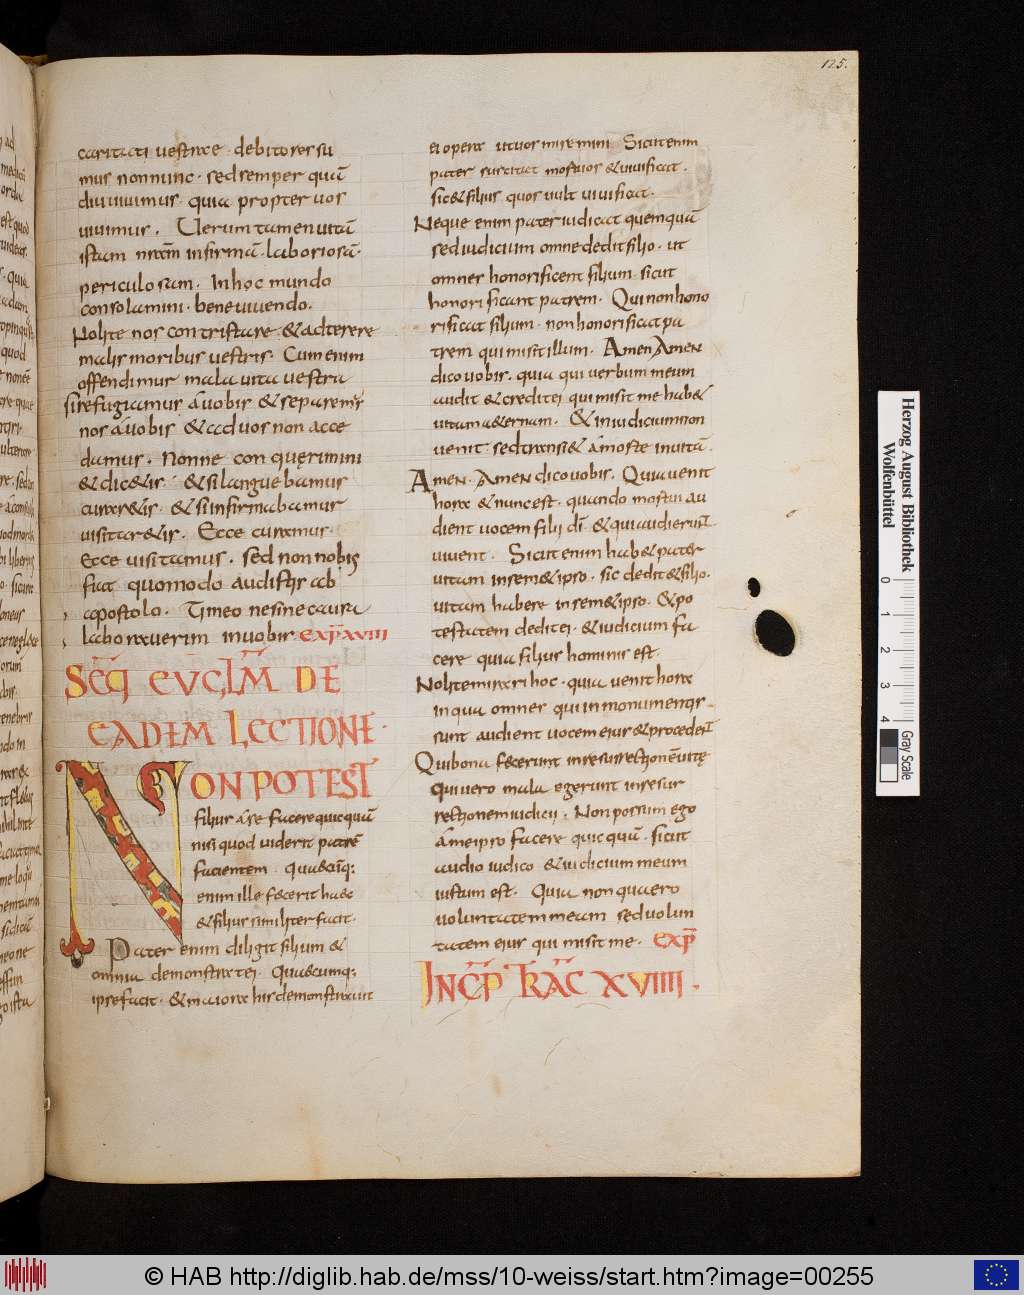 125.
caritati vestrae. debitores su
mus nonnunc. sed semper quādiu
vivimus. quia propter vos
vivimus. Verum tamen vitā
istam nr̄am infirmā. laboriosā.
periculosam. In hoc mundo
consolamini. bene vivendo.
Nolite nos contristare. & adterere
malis moribus vestris. Cum enim
offendimur mala vita vestra
si refugiamus a vobis & separemus
nos a vobis & ad vos non acce
damus. Nonne conquerimini
& dic&is. & si languebamus
curar&is. & si infirmabamur
visitar&is. Ecce curamus.
Ecce visitamus. sed non nobis
fiat quomodo audistis ab
apostolo. Timeo ne sine causa
laboraverim in vobis. EXP̄ XVIII
SEQ̄ EVGLM̄ DE
EADEM LECTIONE.
NON POTEST
filius a se facere quicquā
nisi quod viderit patrē
facientem. Quaecūq:
enim ille fecerit haec
& filius similiter facit.
Pater enim diligit filium &
omnia demonstrat ei. Quaecumq:
ipse facit. & maiora his demonstravit
ei opera ut vos miremini. Sicut enim
pater suscitat mortuos & vivificat.
sic & filius quos vult vivificat.
Neque enim pater iudicat quemquā
sed iudicium omne dedit filio. ut
omnes honorificent filium. sicut
honorificant patrem. Qui non hono
rificat filium. non honorificat pa
trem qui misit illum. Amen Amen
dico vobis. quia qui verbum meum
audit & credit ei qui misit me hab&
vitam a&ernam. & in iudicium non
venit sed transi& a morte in vitā.
Amen. Amen dico vobis. Quia venit
hora & nunc est. quando mortui au
dient vocem filii dī. & qui audierunt
vivent. Sicut enim hab& pater
vitam in sem&ipso. sic dedit & filio.
vitam habere in sem&ipso. & po
testatem dedit ei. & iudicium fa
cere quia filius hominis est.
Nolite mirari hoc. quia venit hora
in qua omnes qui in monumentis
sunt audient vocem eius & procedent
Qui bona fecerunt in resurrectionē vitae
qui vero mala egerunt in resur
rectionem iudicii. Non possum ego
a meipso facere quicquā. sicut
audio iudico & iudicium meum
iustum est. Quia non quaero
voluntatem meam sed volun
tatem eius qui misit me. EXP̄
INCP̄ TRAC̄ XVIIII.
Herzog August Bibliothek
Wolfenbüttel
0 1 2 3 4
Gray Scale
© HAB http://diglib.hab.de/mss/10-weiss/start.htm?image=00255